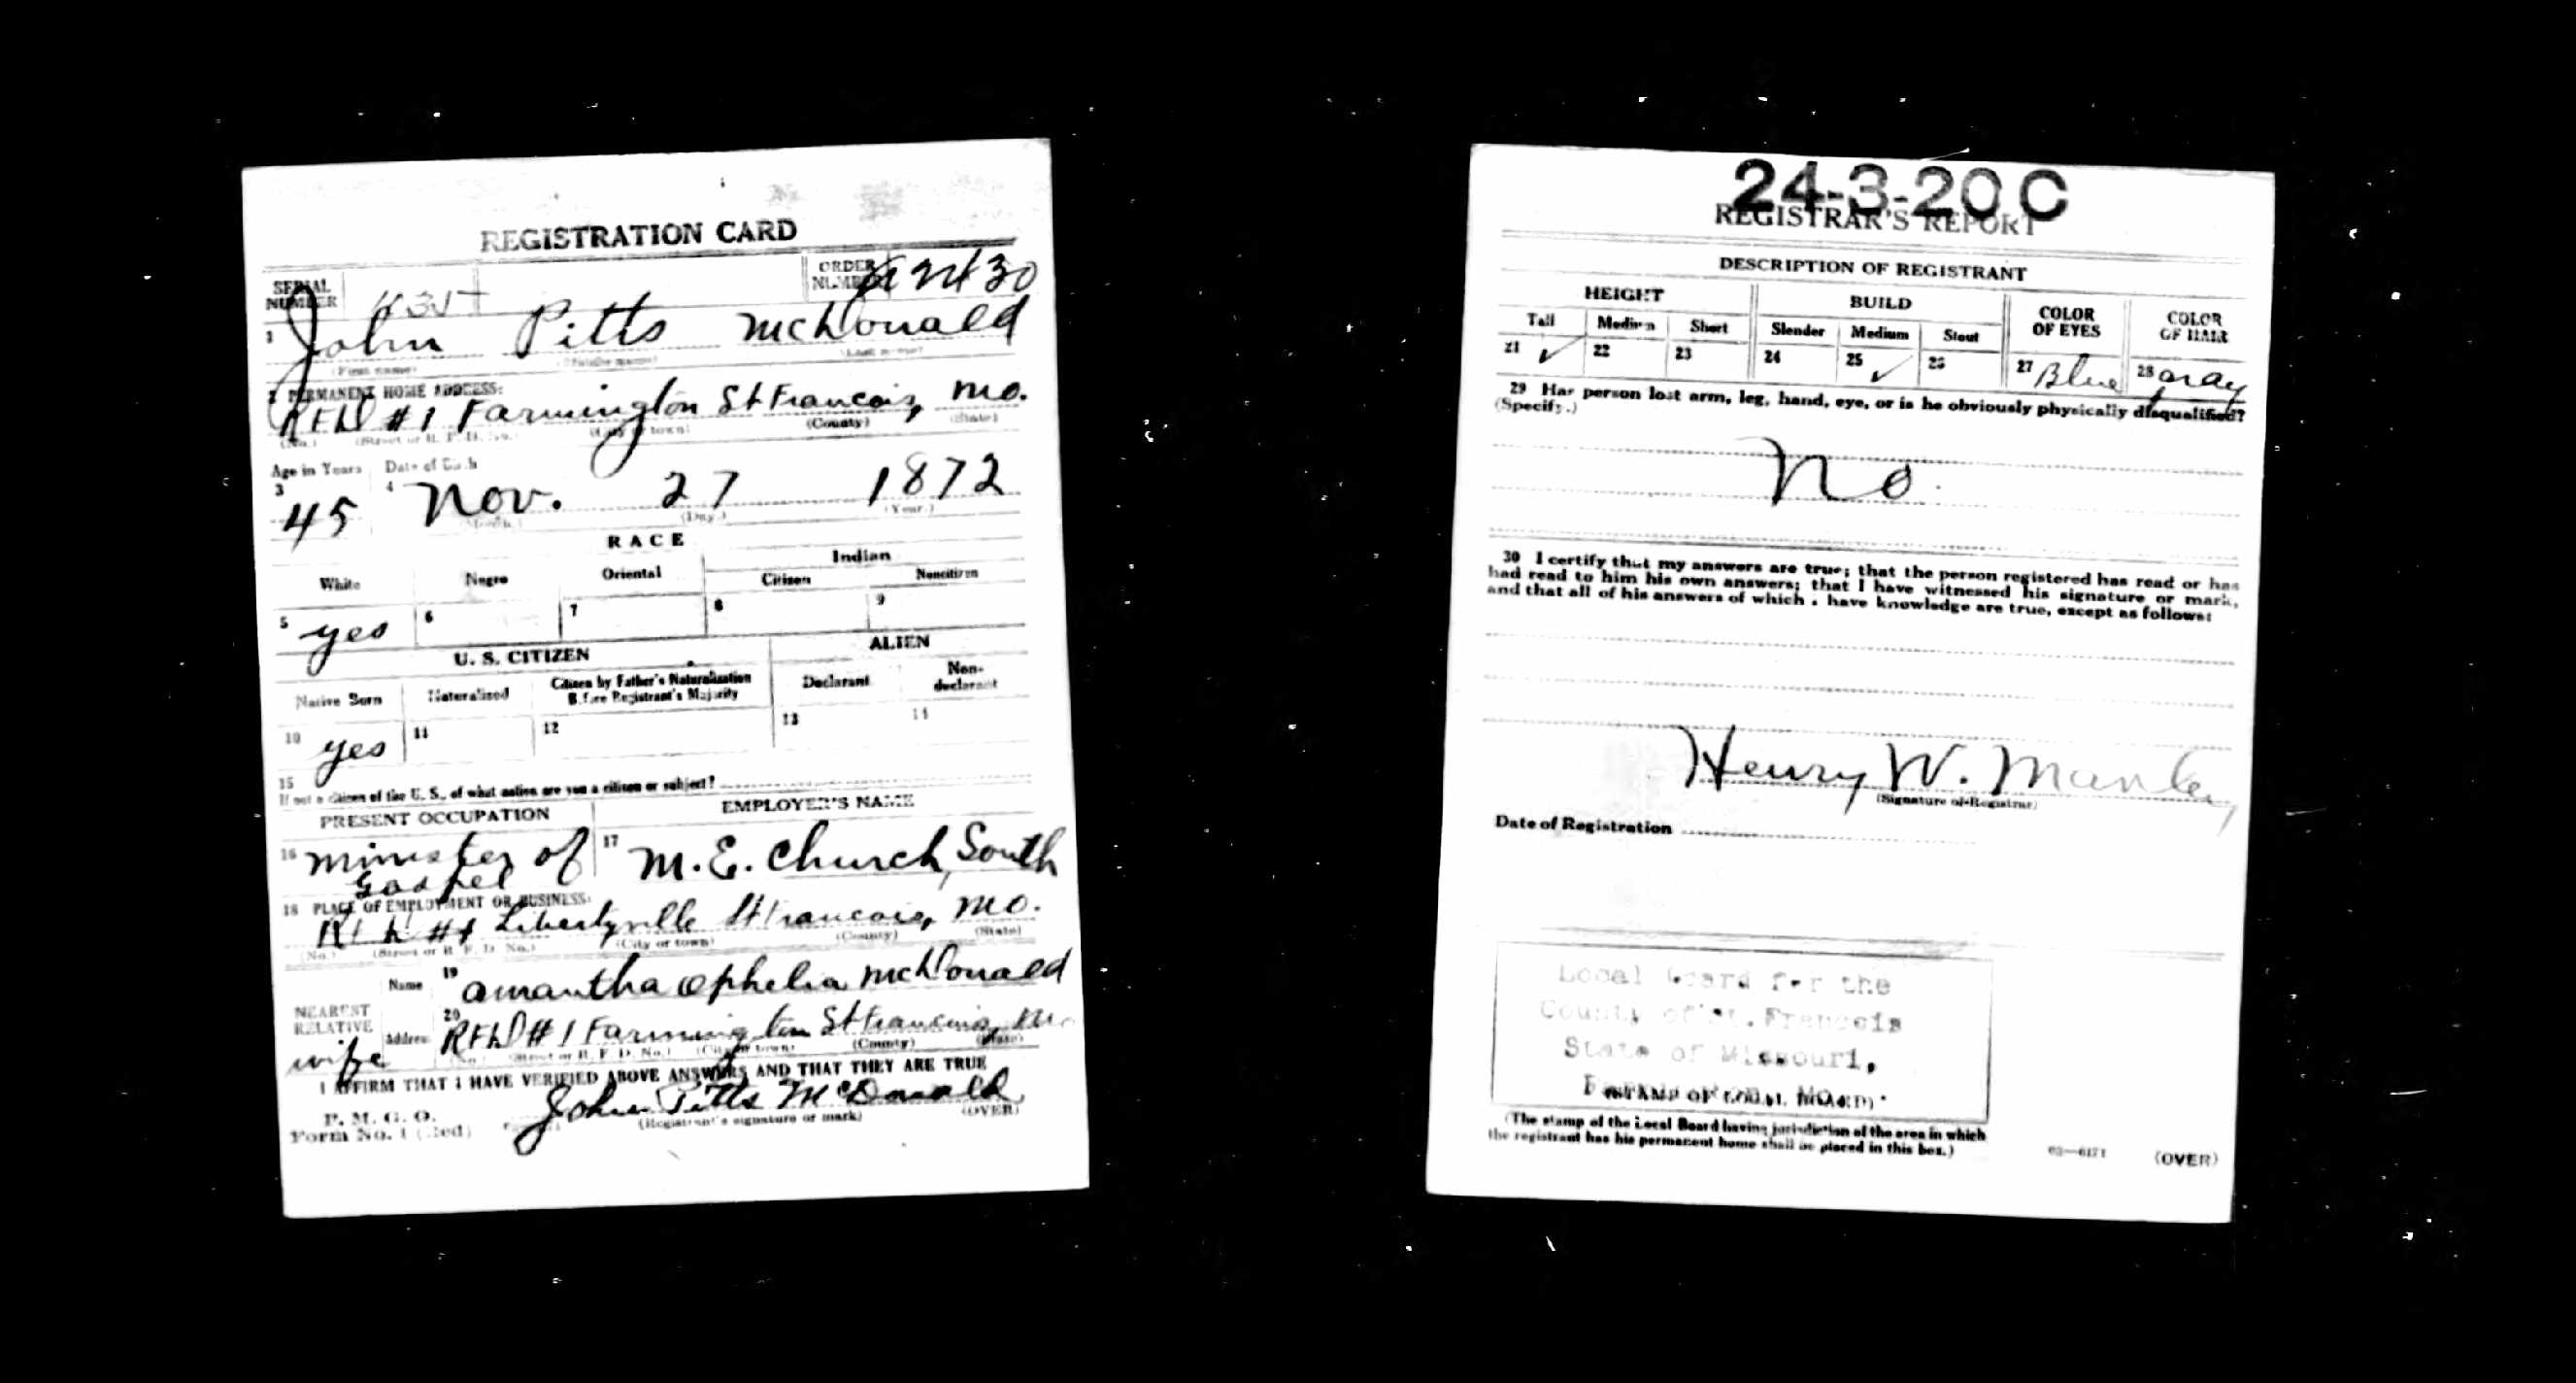 REGISTRATION CARD
SERIAL NUMBER
ORDER NUMBER
1 John Pitts McDonald
(First name) (Middle name) (Last name)
2 PERMANENT HOME ADDRESS:
RFD #1 Farmington St Francois, Mo.
(No.) (Street or R. F. D. No.) (City or town) (County) (State)
Age in Years Date of Birth
3 45 4 Nov. 27 1872
(Month.) (Day.) (Year.)
RACE
White Negro Oriental Indian
Citizen Noncitizen
5 yes 6 7 8 9
U. S. CITIZEN ALIEN
Native Born Naturalized Citizen by Father's Naturalization Before Registrant's Majority Declarant Non-declarant
10 yes 11 12 13 14
15 If not a citizen of the U. S., of what nation are you a citizen or subject?
PRESENT OCCUPATION EMPLOYER'S NAME
16 minister of Gospel 17 M.E. Church, South
18 PLACE OF EMPLOYMENT OR BUSINESS:
Libertyville St Francois, Mo.
(No.) (Street or R. F. D. No.) (City or town) (County) (State)
NEAREST RELATIVE
Name 19 Amantha Ophelia McDonald
Address 20 RFD #1 Farmington St Francois, Mo
wife
(No.) (Street or R. F. D. No.) (City or town) (County) (State)
I AFFIRM THAT I HAVE VERIFIED ABOVE ANSWERS AND THAT THEY ARE TRUE
P. M. G. O.
Form No. 1 (Red)
John Pitts McDonald
(Registrant's signature or mark) (OVER)
24-3-20 C
REGISTRAR'S REPORT
DESCRIPTION OF REGISTRANT
HEIGHT BUILD COLOR OF EYES COLOR OF HAIR
Tall Medium Short Slender Medium Stout
21 ✓ 22 23 24 25 ✓ 26 27 Blue 28 Gray
29 Has person lost arm, leg, hand, eye, or is he obviously physically disqualified?
(Specify.)
No
30 I certify that my answers are true; that the person registered has read or has
had read to him his own answers; that I have witnessed his signature or mark,
and that all of his answers of which I have knowledge are true, except as follows:
Henry W. Manley
(Signature of Registrar)
Date of Registration
Local Board for the
County of St. Francois
State of Missouri,
(STAMP OF LOCAL BOARD)
(The stamp of the Local Board having jurisdiction of the area in which
the registrant has his permanent home shall be placed in this box.)
03—6171 (OVER)